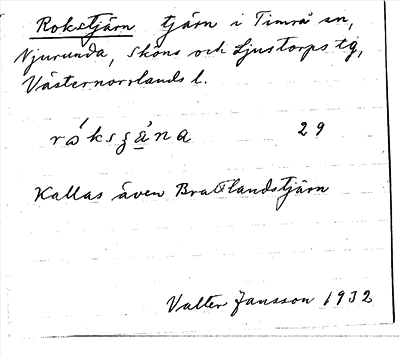 Rokstjärn tjärn i Timrå sn,
Njurunda, Sköns och Ljustorps tg,
Västernorrlands l.
29
Kallas även Bratlandstjärn
Valter Jansson 1932